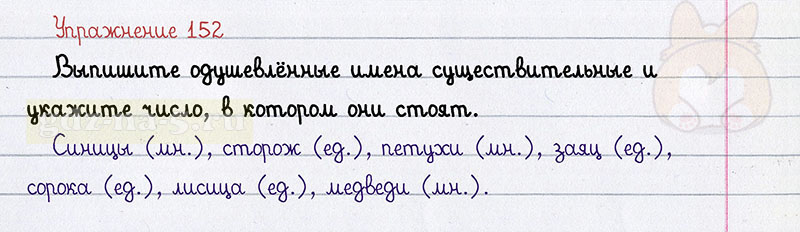 Упражнение 152
Выпишите одушевлённые имена существительные и
укажите число, в котором они стоят.
Синицы (мн.), сторож (ед.), петухи (мн.), заяц (ед.),
сорока (ед.), лисица (ед.), медведи (мн.).